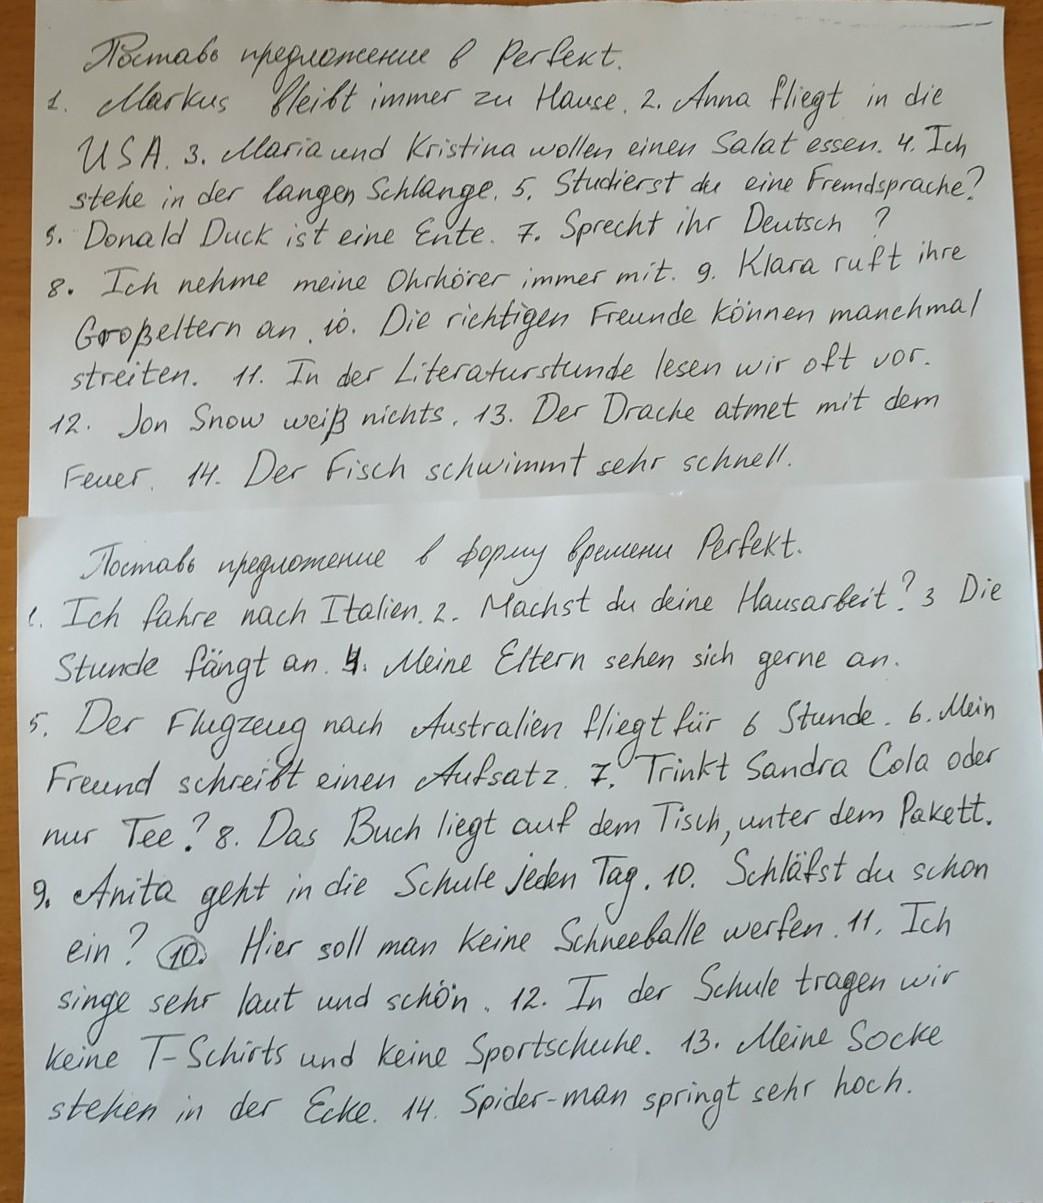 Поставь предложение в Perfekt.
1. Markus bleibt immer zu Hause. 2. Anna fliegt in die
USA. 3. Maria und Kristina wollen einen Salat essen. 4. Ich
stehe in der langen Schlange. 5. Studierst du eine Fremdsprache?
5. Donald Duck ist eine Ente. 7. Sprecht ihr Deutsch ?
8. Ich nehme meine Ohrhörer immer mit. 9. Klara ruft ihre
Großeltern an. 10. Die richtigen Freunde können manchmal
streiten. 11. In der Literaturstunde lesen wir oft vor.
12. Jon Snow weiß nichts. 13. Der Drache atmet mit dem
Feuer. 14. Der Fisch schwimmt sehr schnell.
Поставь предложение в форму времени Perfekt.
1. Ich fahre nach Italien. 2. Machst du deine Hausarbeit? 3 Die
Stunde fängt an. 4. Meine Eltern sehen sich gerne an.
5. Der Flugzeug nach Australien fliegt für 6 Stunde. 6. Mein
Freund schreibt einen Aufsatz. 7. Trinkt Sandra Cola oder
nur Tee? 8. Das Buch liegt auf dem Tisch, unter dem Pakett.
9. Anita geht in die Schule jeden Tag. 10. Schläfst du schon
ein? 10. Hier soll man keine Schneeballe werfen. 11. Ich
singe sehr laut und schön. 12. In der Schule tragen wir
keine T-Schirts und keine Sportschuhe. 13. Meine Socke
stehen in der Ecke. 14. Spider-man springt sehr hoch.